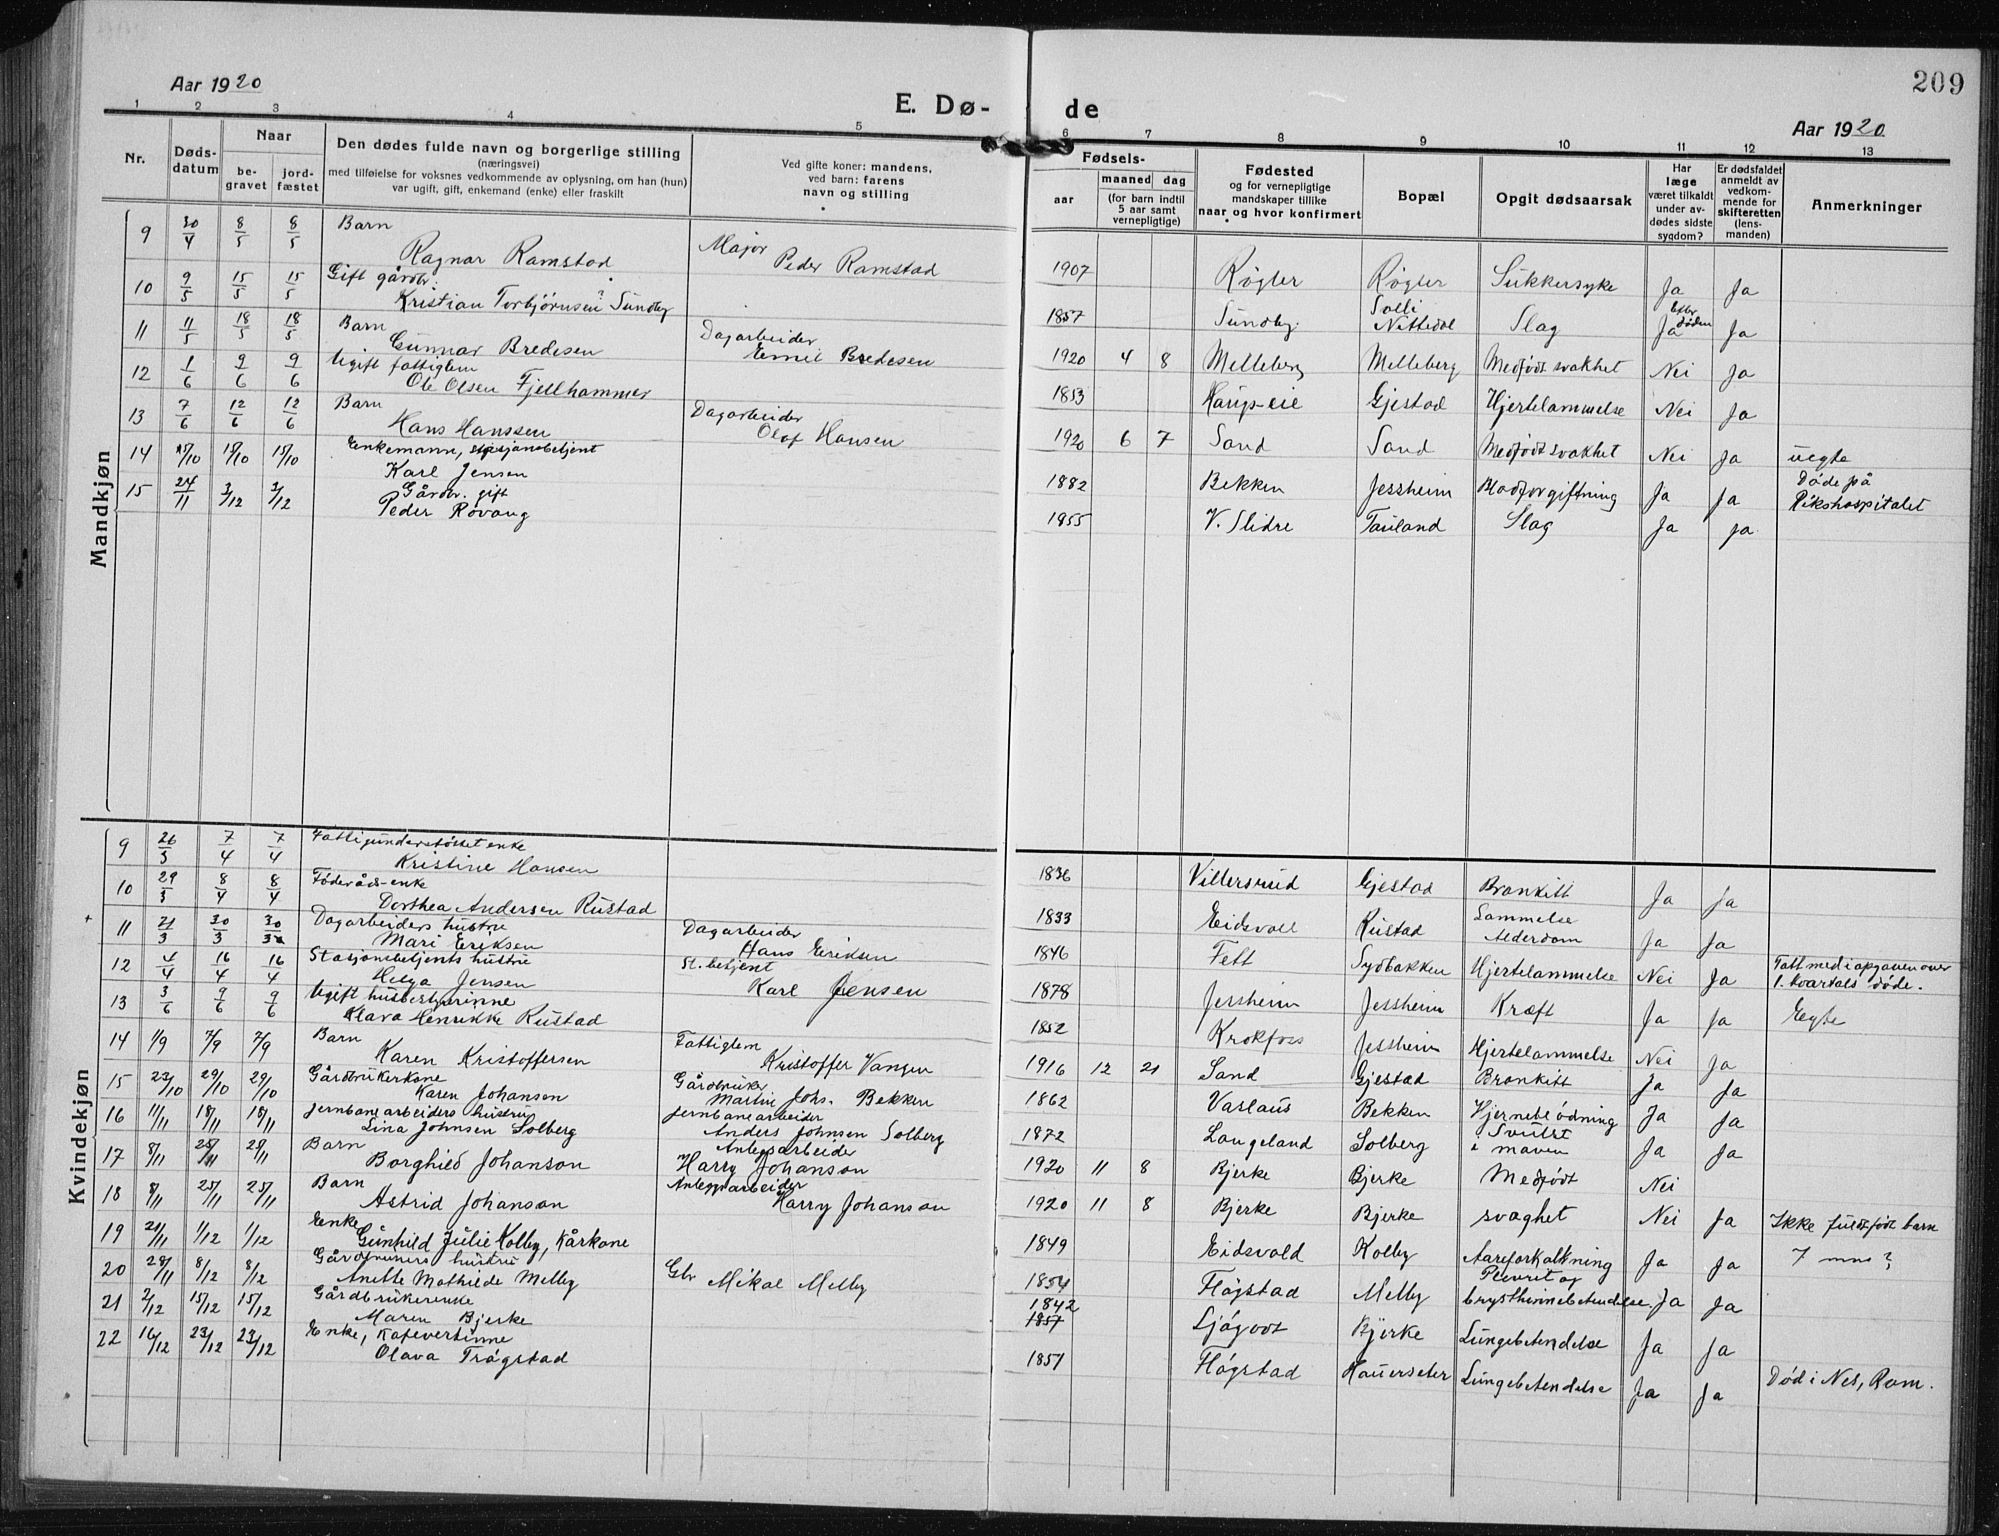 209
Aar 1920
E. Dø- de
Aar 1920
1 2 3 4 5 6 7 8 9 10 11 12 13
Nr.
Døds-
datum
Naar
be-
gravet
jord-
fæstet
Den dødes fulde navn og borgerlige stilling
(næringsvei)
med tilføielse for voksnes vedkommende av oplysning, om han (hun)
var ugift, gift, enkemand (enke) eller fraskilt
Ved gifte koner: mandens,
ved barn: farens
navn og stilling
Fødsels-
aar
maaned dag
(for barn indtil
5 aar samt
vernepligtige)
Fødested
og for vernepligtige
mandskaper tillike
naar og hvor konfirmert
Bopæl
Opgit dødsaarsak
Har
læge
været tilkaldt
under av-
dødes sidste
sygdom?
Er dødsfaldet
anmeldt av
vedkom-
mende for
skifteretten
(lens-
manden)
Anmerkninger
Mandkjøn
9 30/4 8/5 8/5 Barn Ragnar Ramstad Major Peder Ramstad 1907 Røgler Røgler Sukkersyke Ja Ja
10 9/5 15/5 15/5 Gift gårdbr. Kristian Torbjørnsen Sundby 1857 Sundby Solli Nittedal Slag Ja efter døden Ja
11 11/5 18/5 18/5 Barn Gunnar Bredesen Dagarbeider Emil Bredesen 1920 4 8 Melleberg Melleberg Medfødt svakhet Nei Ja
12 1/6 9/6 9/6 Ugift fattiglem Ole Olsen Fjellhammer 1853 Haugs-eie Gjestad Hjertelammelse Nei Ja
13 7/6 12/6 12/6 Barn Hans Hanssen Dagarbeider Olaf Hansen 1920 6 7 Sand Sand Medfødt svakhet Nei Ja uegte
14 15/10 15/10 Enkemann, stasjonsbetjent Karl Jensen 1882 Bekken Jessheim Blodforgiftning Ja Ja Døde på Rikshospitalet
15 24/11 3/12 3/12 Gårdbr. gift Peder Rovang 1855 V. Slidre Tauland Slag Ja ja
Kvindekjøn
9 26/3 7/4 7/4 Fattigunderstøttet enke Kristine Hansen 1836 Villersrud Gjestad Bronkitt Ja Ja
10 29/3 8/4 8/4 Føderåds-enke Dorthea Andersen Rustad 1833 Eidsvoll Rustad Lammelse Alderdom Ja Ja
+ 11 21/3 30/3 30/3 Dagarbeiders hustru Mari Eriksen Dagarbeider Hans Eriksen 1846 Fett Sydbakken Hjertelammelse Nei Ja Tatt med i opgaven over 1. kvartals døde.
12 4/4 16/4 16/4 Stasjonsbetjents hustru Helga Jensen St. betjent Karl Jensen 1878 Jessheim Jessheim Kræft Ja Ja Egte
13 3/6 9/6 9/6 Ugift husbestyrinne Klara Henrikke Rustad 1852 Krokfoss Jessheim Hjertelammelse Nei Ja
14 1/9 7/9 7/9 Barn Karen Kristoffersen Fattiglem Kristoffer Vangen 1916 12 21 Sand Gjestad Bronkitt Ja Ja
15 23/10 29/10 29/10 Gårdbrukerkone Karen Johansen Gårdbruker Martin Johs. Bekken 1862 Vaslaus Bekken Hjerneblødning Ja Ja
16 11/11 18/11 18/11 Jernbanearbeiders hustru Lina Johnsen Solberg Jernbanearbeider Anders Johnsen Solberg 1872 Langeland Solberg Svulst i maven Ja Ja
17 8/11 25/11 25/11 Barn Borghild Johanson Anlegsarbeider Harry Johanson 1920 11 8 Bjerke Bjerke Medfødt Nei
18 8/11 25/11 25/11 Barn Astrid Johanson Anleggsarbeider Harry Johanson 1920 11 8 Bjerke Bjerke svaghet Nei Ja Ikke fuldfødt barn 7 mns?
19 21/11 1/12 1/12 Enke Gunhild Julie Kolby, Kårkone 1849 Eidsvold Kolby Aareforkalkning Ja Ja
20 28/11 8/12 8/12 Gårdbrukers hustru Anette Mathilde Melby Gbr Mikal Melby 1854 Fløgstad Melby Plevrit og brysthinnebetendelse Ja Ja
21 2/12 15/12 15/12 Gårdbrukerenke Maren Bjerke 1842 1857 Ljøgodt Bjerke Lungebetendelse Ja Ja
22 16/12 23/12 23/12 Enke, Kafevertinne Olava Trøgstad 1857 Fløgstad Hauerseter Lungebetendelse Ja Ja Død i Nes, Rom.